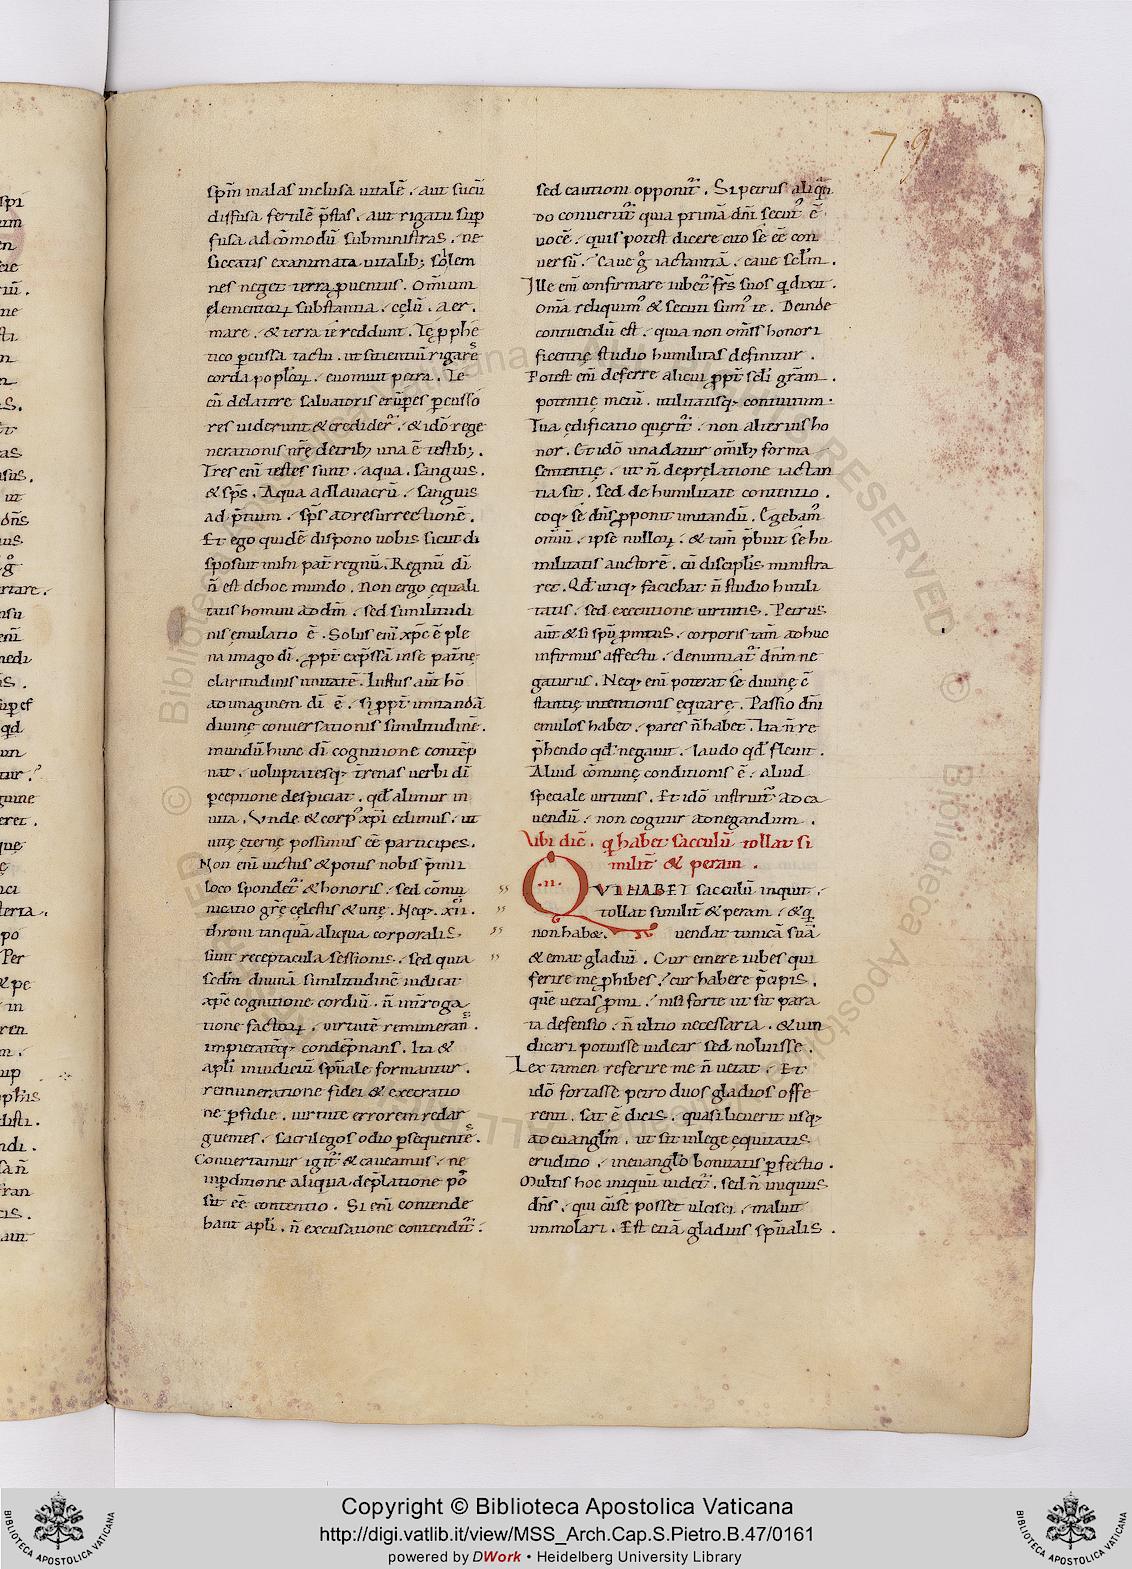 79
sp̄m malas inclusa uitalē . aut sucū
diffusa fertilē p̄stas . aut rigatu sup̱
fusa ad cōmodū subministras . ne
siccatis exanimata uitalib; solem
nes neget terra ꝓuentus . Om̄ium
elementoꝝ substantia . cęlū . aer .
mare . & terra te reddunt . Te ꝓphe
tico ꝑcussa tactu . ut sitientiū rigares
corda poploꝝ . euomuit petra . Te
cū delatere saluatoris erūpes ꝑcusso
res uiderunt & credider̄ . & idō rege
nerationis nr̄ę detrib; una ē testib; .
Tres enī testes sunt . aqua . sanguis .
& sp̄s . Aqua adlauacrū . sanguis
ad p̄tium . sp̄s adresurrectionē .
Et ego quidē dispono uobis sicut di
sposuit mihi pat̄ regnū . Regnū dī
n̄ est dehoc mundo . Non ergo equali
tatis homini addm̄ . sed similitudi
nis ęmulatio ē . Solus enī xp̄c ē ple
na imago dī . ꝓpt̄ exp̄ssā inse pat̄nę
claritudinis unitatē . Iustus aut̄ hō
ad imaginem dī ē . si ꝓpt̄ imitandā
diuinę conuersationis similitudinē .
mundū hunc dī cognitione contēp
nat . uoluptatesq; t̄renas uerbi dī
ꝑceptione despiciat . qd̄ alimur in
uita . Vnde & corp᾽ xp̄i edimus . ut
uitę ęternę possimus eē participes .
Non enī uictus & potus nobis p̄mii
loco spondet᾽ & honoris . sed cōmu
nicatio gr̄ę cęlestis & uitę . Neq; xii .
throni tanquā aliqua corporalis
sunt receptacula sessionis . sed quia
scdm̄ diuinā similitudinē iudicat
xp̄c cognitione cordiū . n̄ int̄roga
tione factoꝝ . uirtutē remunerans .
impietatēq; condēpnans . Ita &
apl̄i iniudiciū sp̄uale formantur .
remuneratione fidei & execratio
ne ꝑfidię . uirtute errorem redar
guentes . sacrilegos odio ꝑsequentes .
Conuertamur igit᾽ & caueamus . ne
inꝑditione aliqua dep̄latione
sit eē contentio . Si enī contende
bant apl̄i . n̄ excusatione contendit᾽ .
sed cautioni opponit᾽ . Si petrus aliqn̄
do conuertit᾽ quia primā dn̄i secut᾽ ē
uocē . quis potest dicere cito sē eē con
uersū . Caue g̊ iactantiā . caue sclm̄ .
Ille enī confirmare iubet᾽ fr̄s suos q̱ dixit .
Om̄a reliquim᾽ & secuti sum᾽ te . Deinde
contuendū est . quia non om̄is honori
ficentię studio humilitas definitur .
Potest enī deferre alicui ꝓpt̄ scl̄i grām .
potentię metū . utilitatisq; contuitum .
Tua ędificatio querit᾽ . non alterius ho
nor . Et idō una datur om̄ib; forma
sententię . ut n̄ deprelatione iactan
tia sit . sed de humilitate contentio .
eoq; se dn̄s ꝓponit imitandū . Egebam᾽
om̄iū . ipse nulloꝝ . & tam̄ p̄buit se hu
militatis auctorē . cū discipl̄is ministra
ret . Qd̄ utiq; faciebat n̄ studio humili
tatis . sed executione uirtutis . Petrus
aut̄ & si sp̄u ꝓmtus . corporis tam̄ adhuc
infirmus affectu . denuntiat᾽ dn̄m ne
gaturus . Neq; enī poterat se diuinę c̄
stantię intentionis ęquare . Passio dn̄i
emulos habet . pares n̄ habet . Ita n̄ re
p̄hendo qd̄ negauit . laudo qd̄ fleuit .
Aliud cōmune conditionis ē . aliud
speciale uirtutis . Et idō instruit᾽ adca
uendū . non cogitur adnegandum .
Vbi dic̄ . q̱ habet sacculū tollat si
milit̄ & peram .
·ii·
QVI HABET sacculū inquit .
tollat similit̄ & peram . & q̱
non habet . uendat tunicā suā
& emat gladiū . Cur emere iubes qui
ferire me ꝓhibes . cur habere p̄cipis .
quē uetas ꝓmi . nisi forte ut sit para
ta defensio . n̄ ultio necessaria . & uin
dicari potuisse uidear sed noluisse .
Lex tamen referire me n̄ uetat . Et
idō fortasse petro duos gladios offe
renti . sat ē dicis . quasi licuerit usq;
ad euanglm̄ . ut sit inlege ęquitatis
eruditio . ineuanglo bonitatis ꝑfectio .
Multis hoc iniquū uidet᾽ . sed n̄ iniquus
dn̄s . qui cū se posset ulcisci . maluit
immolari . Est etiā gladius sp̄ualis .
Copyright © Biblioteca Apostolica Vaticana
http://digi.vatlib.it/view/MSS_Arch.Cap.S.Pietro.B.47/0161
powered by DWork • Heidelberg University Library